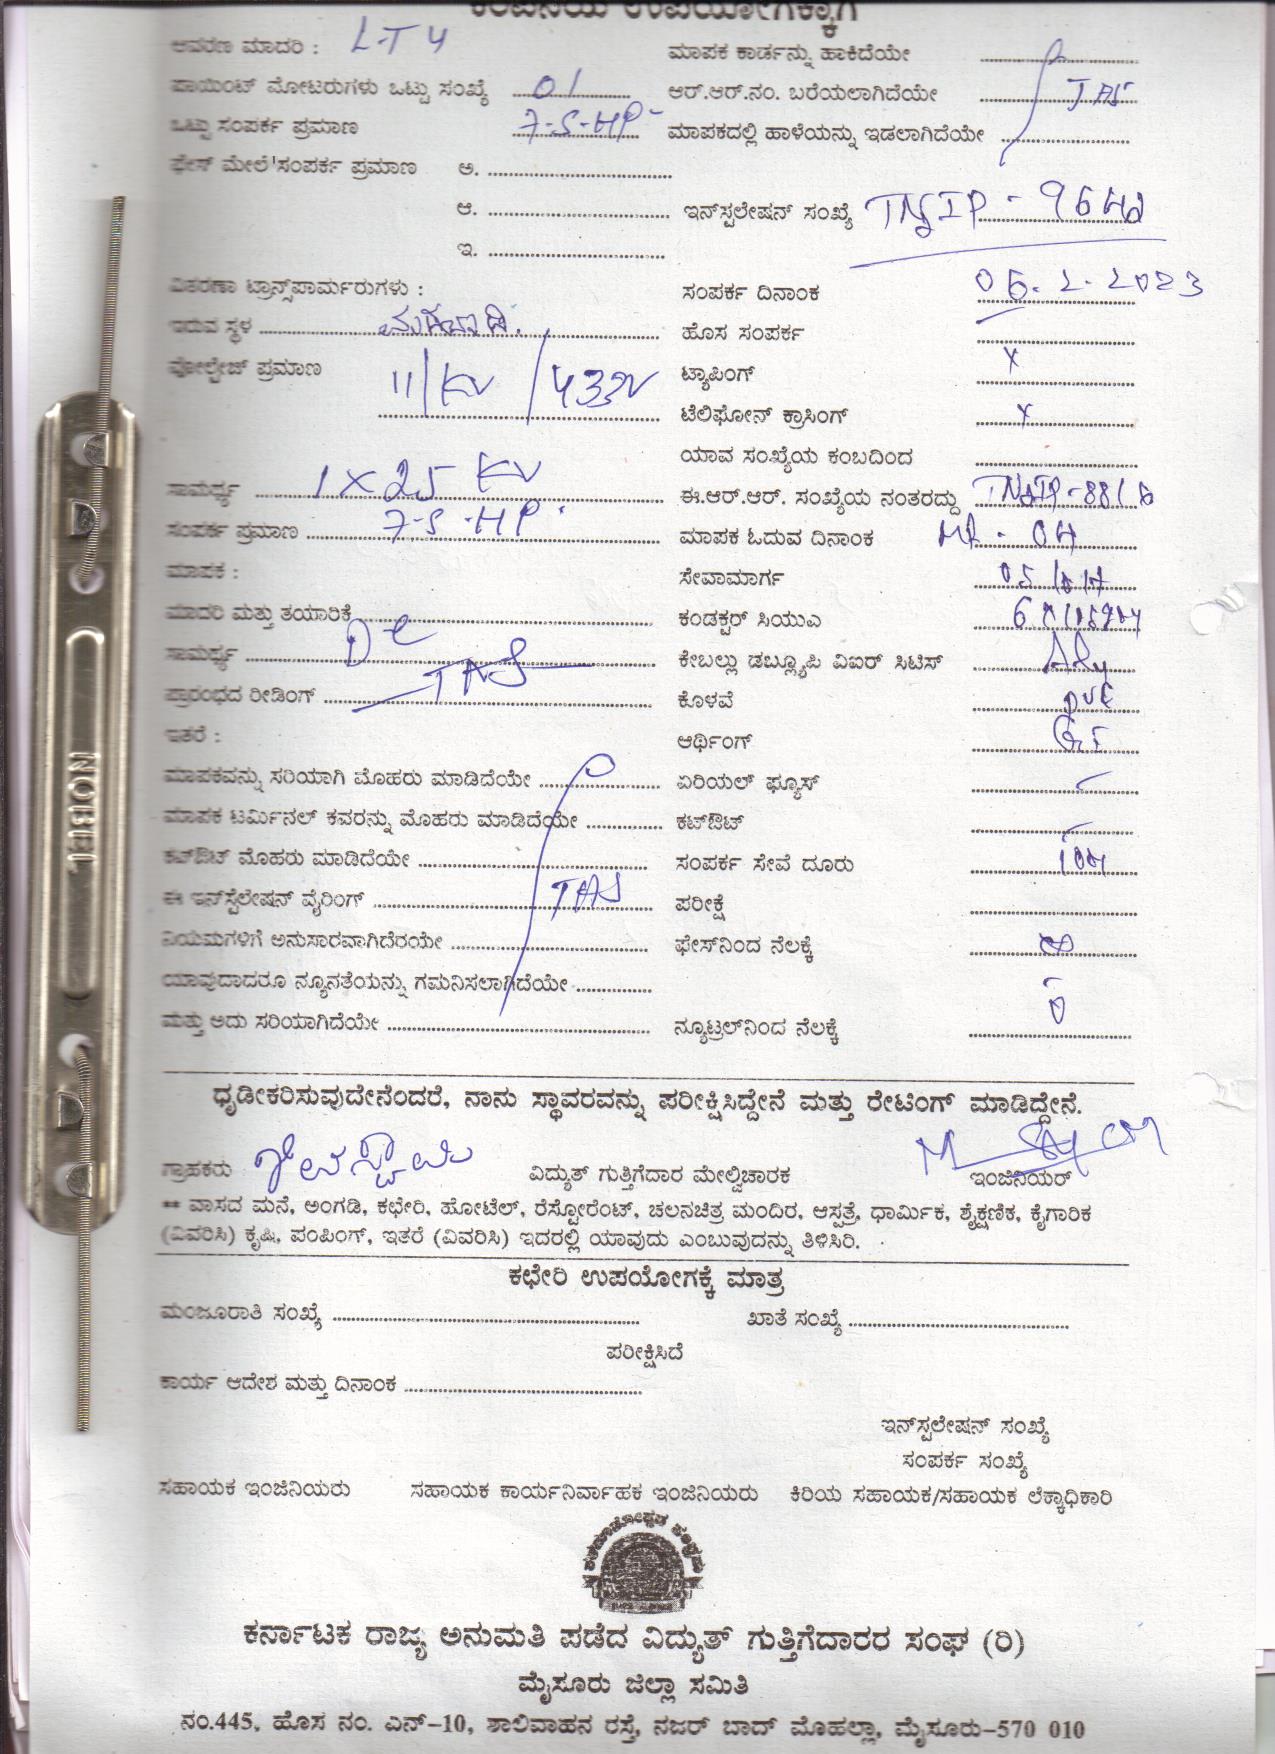 ಕಂಪನಿಯ ಉಪಯೋಗಕ್ಕಾಗಿ
ಆವರಣ ಮಾದರಿ : L-T 4 ಮಾಪಕ ಕಾರ್ಡನ್ನು ಹಾಕಿದೆಯೇ
ಪಾಯಿಂಟ್ ಮೋಟರುಗಳು ಒಟ್ಟು ಸಂಖ್ಯೆ 01 ಆರ್.ಆರ್.ನಂ. ಬರೆಯಲಾಗಿದೆಯೇ
ಒಟ್ಟು ಸಂಪರ್ಕ ಪ್ರಮಾಣ 7-5-HP ಮಾಪಕದಲ್ಲಿ ಹಾಳೆಯನ್ನು ಇಡಲಾಗಿದೆಯೇ
ಫೇಸ್ ಮೇಲೆ ಸಂಪರ್ಕ ಪ್ರಮಾಣ ಅ.
ಆ. ಇನ್‌ಸ್ಪಲೇಷನ್ ಸಂಖ್ಯೆ
ಇ.
ವಿತರಣಾ ಟ್ರಾನ್ಸ್‌ಪಾರ್ಮರುಗಳು : ಸಂಪರ್ಕ ದಿನಾಂಕ 06.2.2023
ಇರುವ ಸ್ಥಳ ಹೊಸ ಸಂಪರ್ಕ
ವೋಲ್ಟೇಜ್ ಪ್ರಮಾಣ 11/KV/433V ಟ್ಯಾಪಿಂಗ್ x
ಟೆಲಿಫೋನ್ ಕ್ರಾಸಿಂಗ್ x
ಯಾವ ಸಂಖ್ಯೆಯ ಕಂಬದಿಂದ
ಸಾಮರ್ಥ್ಯ 1 X 25 KV ಈ.ಆರ್.ಆರ್. ಸಂಖ್ಯೆಯ ನಂತರದ್ದು
ಸಂಪರ್ಕ ಪ್ರಮಾಣ 7-5-HP ಮಾಪಕ ಓದುವ ದಿನಾಂಕ
ಮಾಪಕ : ಸೇವಾಮಾರ್ಗ
ಮಾದರಿ ಮತ್ತು ತಯಾರಿಕೆ ಕಂಡಕ್ಟರ್ ಸಿಯುಎ
ಸಾಮರ್ಥ್ಯ ಕೇಬಲ್ಲು ಡಬ್ಲ್ಯೂಪಿ ವಿಐಆರ್ ಸಿಟಿಸ್
ಪ್ರಾರಂಭದ ರೀಡಿಂಗ್ ಕೊಳವೆ
ಇತರೆ : ಆರ್ಥಿಂಗ್
ಮಾಪಕವನ್ನು ಸರಿಯಾಗಿ ಮೊಹರು ಮಾಡಿದೆಯೇ ಏರಿಯಲ್ ಫ್ಯೂಸ್
ಮಾಪಕ ಟರ್ಮಿನಲ್ ಕವರನ್ನು ಮೊಹರು ಮಾಡಿದೆಯೇ ಕಟ್‌ಔಟ್
ಕಟ್‌ಔಟ್ ಮೊಹರು ಮಾಡಿದೆಯೇ ಸಂಪರ್ಕ ಸೇವೆ ದೂರು
ಈ ಇನ್‌ಸ್ಟೆಲೇಷನ್ ವೈರಿಂಗ್ ಪರೀಕ್ಷೆ
ನಿಯಮಗಳಿಗೆ ಅನುಸಾರವಾಗಿದೆರಯೇ ಫೇಸ್‌ನಿಂದ ನೆಲಕ್ಕೆ
ಯಾವುದಾದರೂ ನ್ಯೂನತೆಯನ್ನು ಗಮನಿಸಲಾಗಿದೆಯೇ
ಮತ್ತು ಅದು ಸರಿಯಾಗಿದೆಯೇ ನ್ಯೂಟ್ರಲ್‌ನಿಂದ ನೆಲಕ್ಕೆ
ಧೃಡೀಕರಿಸುವುದೇನೆಂದರೆ, ನಾನು ಸ್ಥಾವರವನ್ನು ಪರೀಕ್ಷಿಸಿದ್ದೇನೆ ಮತ್ತು ರೇಟಿಂಗ್ ಮಾಡಿದ್ದೇನೆ.
ಗ್ರಾಹಕರು ವಿದ್ಯುತ್ ಗುತ್ತಿಗೆದಾರ ಮೇಲ್ವಿಚಾರಕ ಇಂಜಿನಿಯರ್
** ವಾಸದ ಮನೆ, ಅಂಗಡಿ, ಕಛೇರಿ, ಹೋಟೆಲ್, ರೆಸ್ಟೋರೆಂಟ್, ಚಲನಚಿತ್ರ ಮಂದಿರ, ಆಸ್ಪತ್ರೆ, ಧಾರ್ಮಿಕ, ಶೈಕ್ಷಣಿಕ, ಕೈಗಾರಿಕ
(ವಿವರಿಸಿ) ಕೃಷಿ, ಪಂಪಿಂಗ್, ಇತರೆ (ವಿವರಿಸಿ) ಇದರಲ್ಲಿ ಯಾವುದು ಎಂಬುವುದನ್ನು ತಿಳಿಸಿರಿ.
ಕಛೇರಿ ಉಪಯೋಗಕ್ಕೆ ಮಾತ್ರ
ಮಂಜೂರಾತಿ ಸಂಖ್ಯೆ ಖಾತೆ ಸಂಖ್ಯೆ
ಪರೀಕ್ಷಿಸಿದೆ
ಕಾರ್ಯ ಆದೇಶ ಮತ್ತು ದಿನಾಂಕ
ಇನ್‌ಸ್ಪಲೇಷನ್ ಸಂಖ್ಯೆ
ಸಂಪರ್ಕ ಸಂಖ್ಯೆ
ಸಹಾಯಕ ಇಂಜಿನಿಯರು ಸಹಾಯಕ ಕಾರ್ಯನಿರ್ವಾಹಕ ಇಂಜಿನಿಯರು ಕಿರಿಯ ಸಹಾಯಕ/ಸಹಾಯಕ ಲೆಕ್ಕಾಧಿಕಾರಿ
ಕರ್ನಾಟಕ ರಾಜ್ಯ ಅನುಮತಿ ಪಡೆದ ವಿದ್ಯುತ್ ಗುತ್ತಿಗೆದಾರರ ಸಂಘ (ರಿ)
ಮೈಸೂರು ಜಿಲ್ಲಾ ಸಮಿತಿ
ನಂ.445, ಹೊಸ ನಂ. ಎನ್-10, ಶಾಲಿವಾಹನ ರಸ್ತೆ, ನಜರ್ ಬಾದ್ ಮೊಹಲ್ಲಾ, ಮೈಸೂರು-570 010
NOBEL